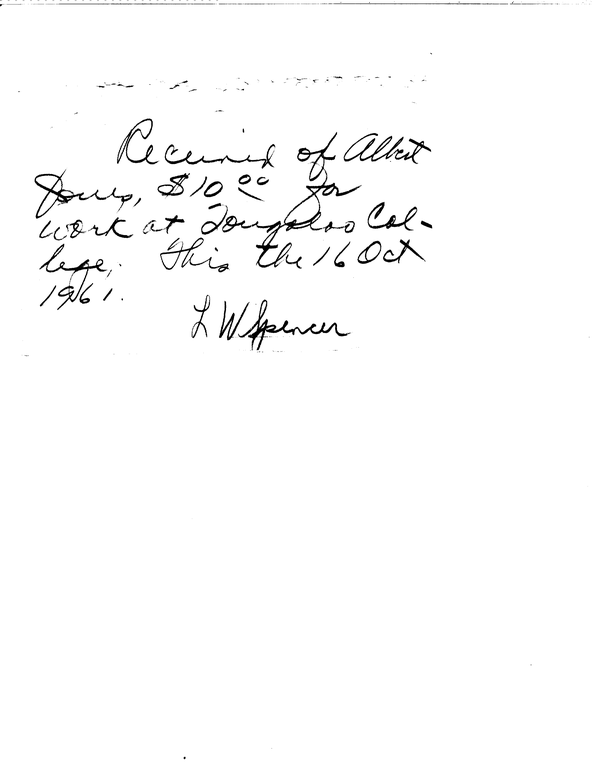 Received of Albert
Jones, $10.00 for
work at Tougaloo Col-
lege. This the 16 Oct
1961.
L W Spencer